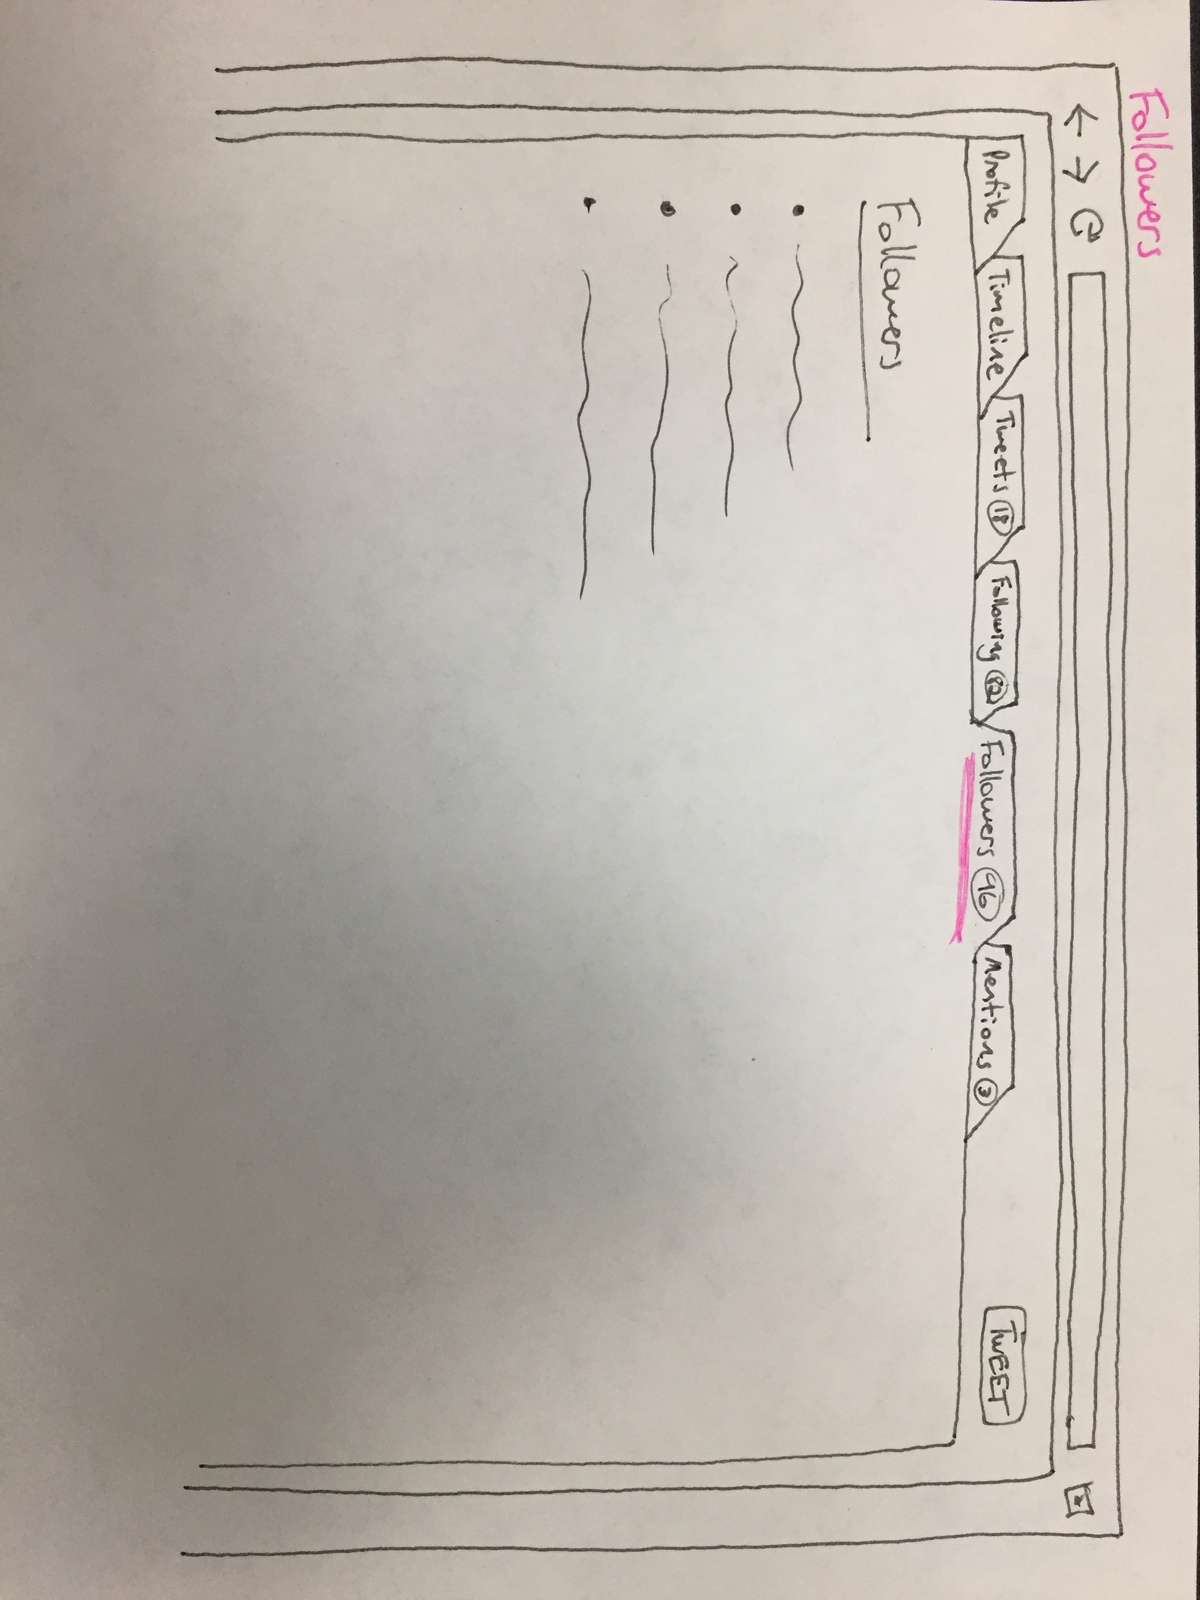 Followers
Profile Timeline Tweets 18 Following 82 Followers 96 Mentions 3 TWEET
Followers